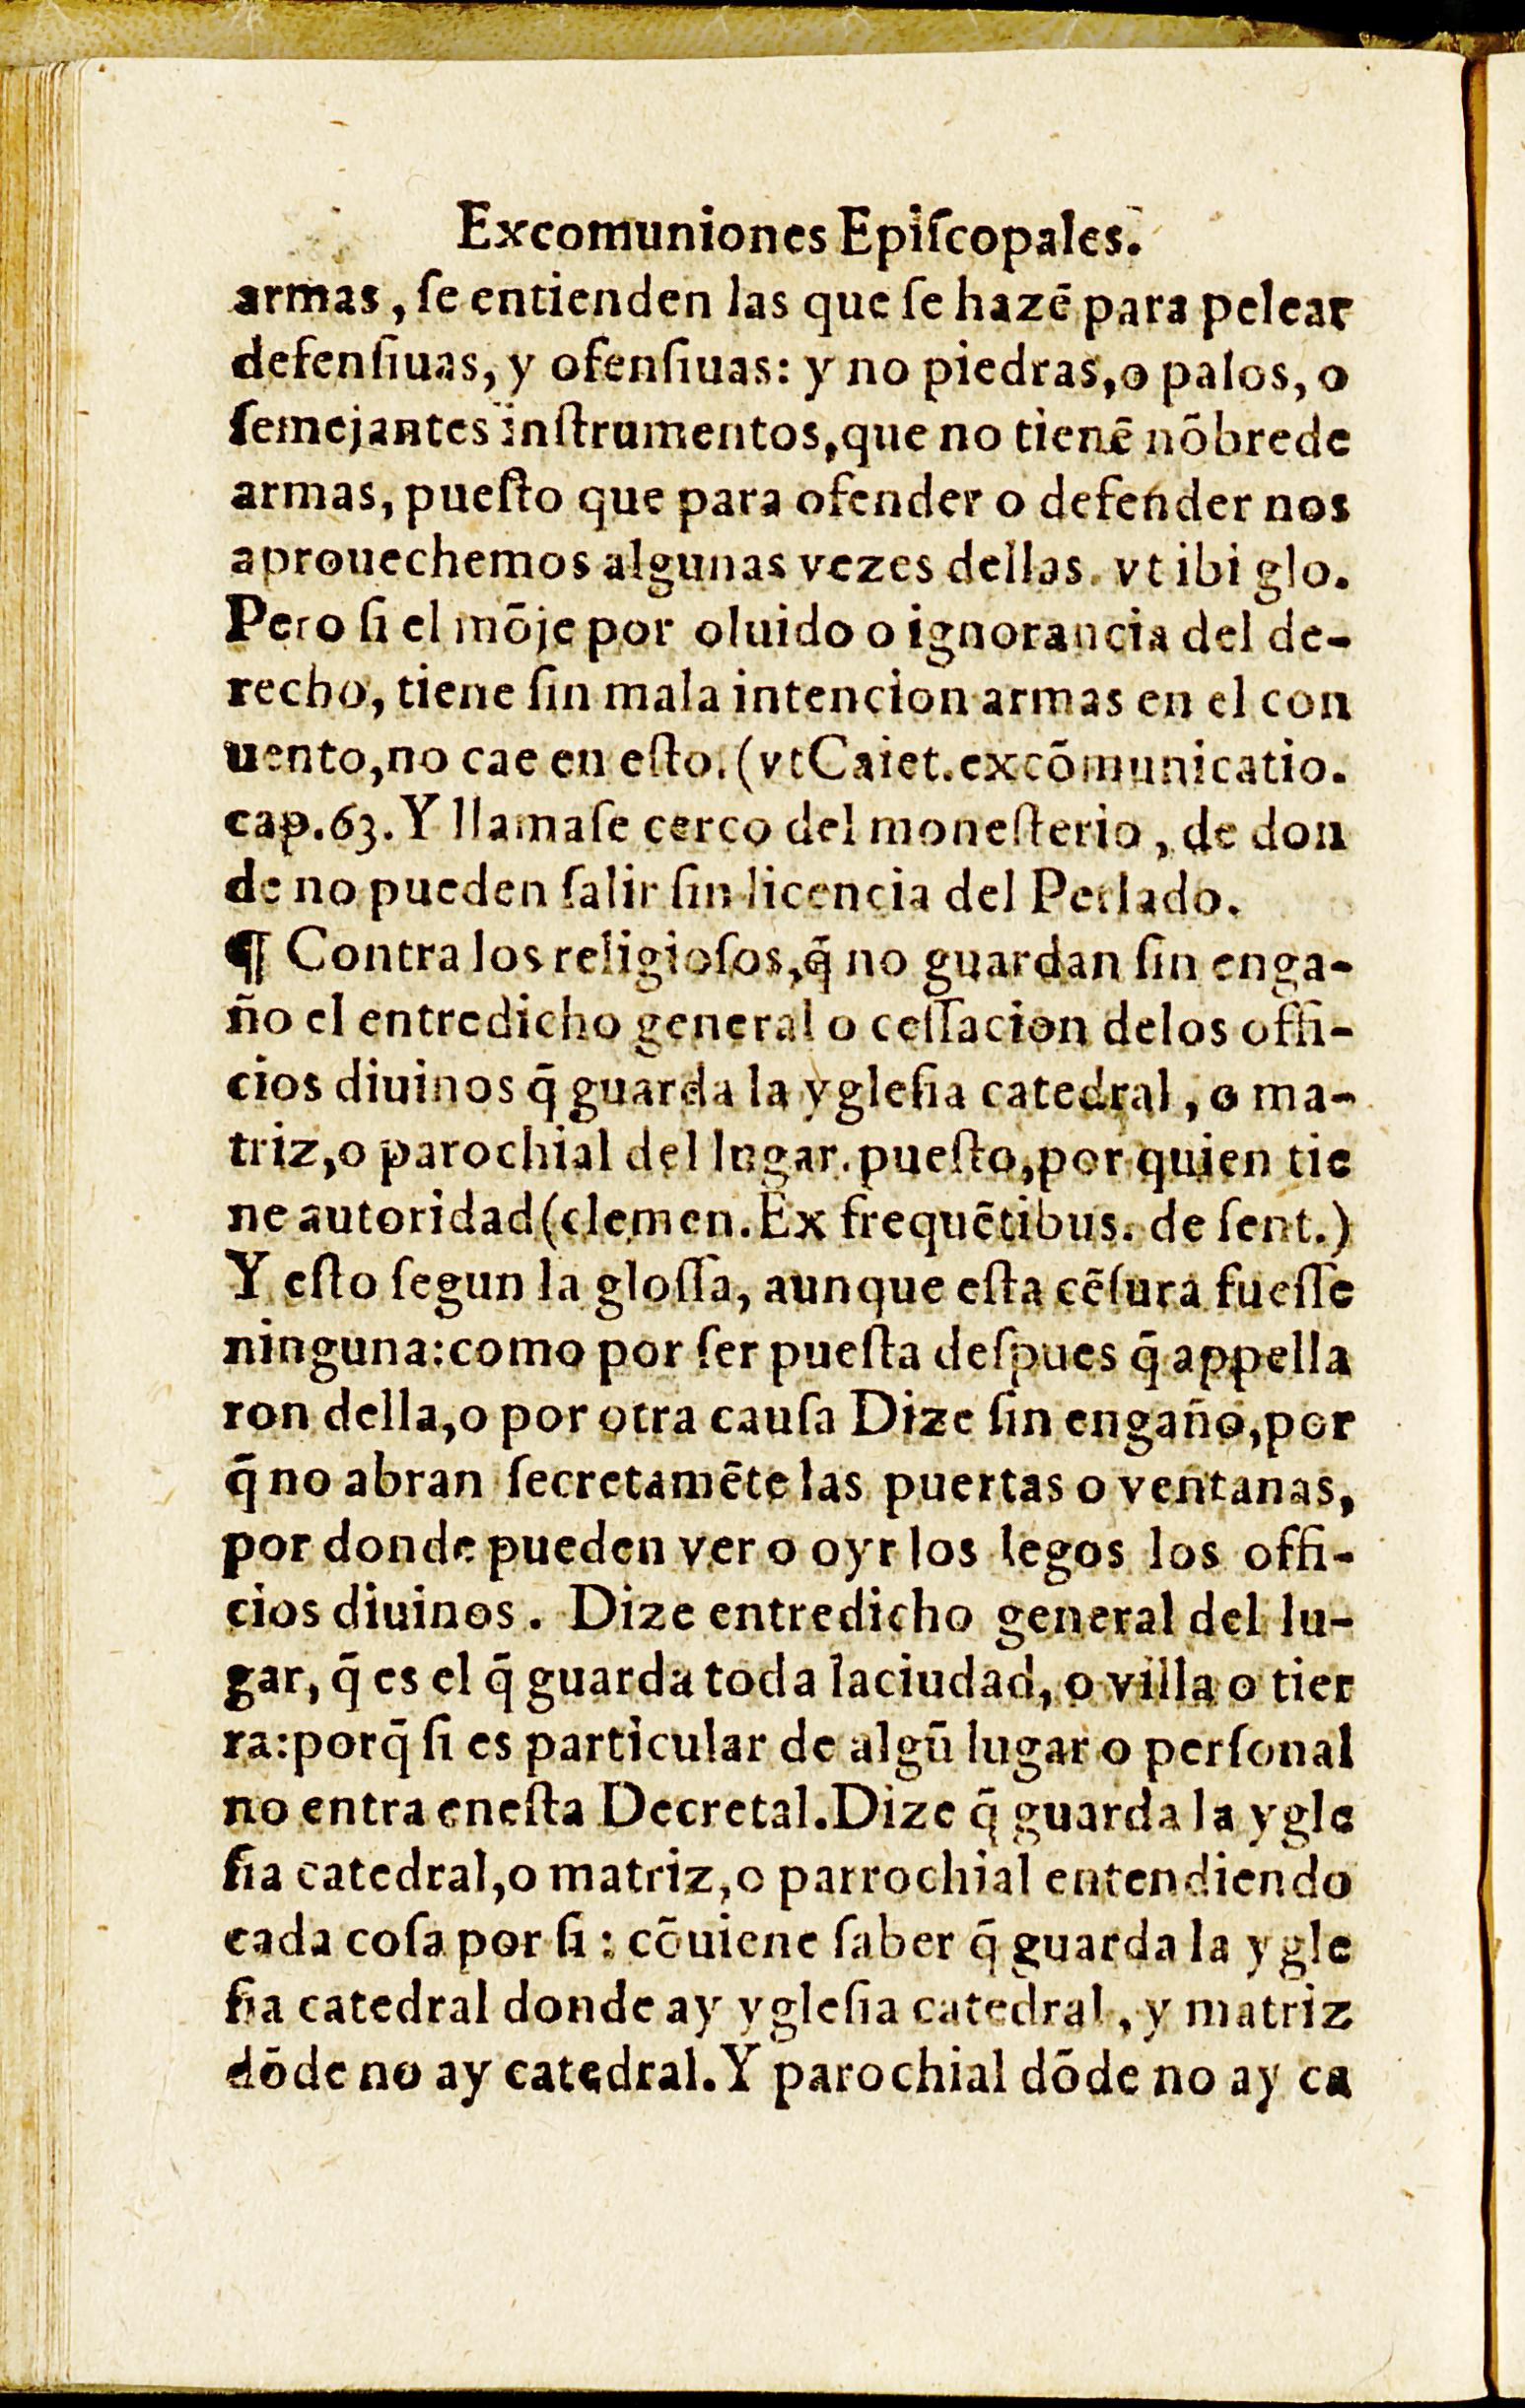 Excomuniones Epiſcopales.
armas, ſe entienden las que ſe hazē para pelear
defenſiuas, y ofenſiuas: y no piedras,o palos, o
ſemejantes inſtrumentos,que no tienē nōbrede
armas, pueſto que para ofender o defender nos
aprouechemos algunas vezes dellas. vt ibi glo.
Pero ſi el mōje por oluido o ignorancia del de-
recho, tiene ſin mala intencion armas en el con
uento,no cae en eſto. (vtCaiet.excōmunicatio.
cap.63.Y llamaſe cerco del moneſterio, de don
de no pueden ſalir ſin licencia del Perlado.
¶ Contra los religioſos,q̄ no guardan ſin enga-
ño el entredicho general o ceſſacion delos offi-
cios diuinos q̄ guarda la ygleſia catedral, o ma-
triz,o parochial del lugar.pueſto,por quien tie
ne autoridad(clemen.Ex frequētibus. de ſent.)
Y eſto ſegun la gloſſa, aunque eſta cēſura fueſſe
ninguna:como por ſer pueſta deſpues q̄ appella
ron della,o por otra cauſa Dize ſin engaño,por
q̄ no abran ſecretamēte las puertas o ventanas,
por donde pueden ver o oyr los legos los offi-
cios diuinos. Dize entredicho general del lu-
gar, q̄ es el q̄ guarda toda laciudad, o villa o tier
ra:porq̄ ſi es particular de algū lugar o perſonal
no entra eneſta Decretal.Dize q̄ guarda la ygle
ſia catedral,o matriz,o parrochial entendiendo
cada coſa por ſi : cōuiene ſaber q̄ guarda la ygle
ſia catedral donde ay ygleſia catedral, y matriz
dōde no ay catedral.Y parochial dōde no ay ca